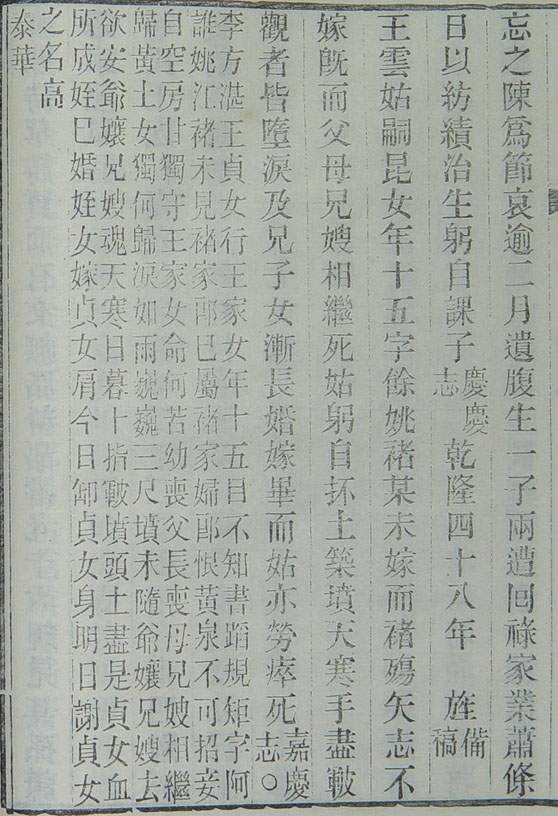 忘之陳爲節哀逾二月遺腹生一子兩遭回祿家業蕭條
日以紡績治生躬自課子慶慶志乾隆四十八年 旌備稿
王雲姑嗣昆女年十五字餘姚褚某未嫁而褚殤矢志不
嫁旣而父母兄嫂相繼死姑躬自抔土築墳天寒手盡皸
觀者皆墮淚及兄子女漸長婚嫁畢而姑亦勞瘁死嘉慶志○
李方湛王貞女行王家女年十五目不知書蹈規矩字阿
誰姚江褚未見褚家郎已屬褚家婦郎恨黃泉不可招妾
自空房甘獨守王家女命何苦幼喪父長喪母兄嫂相繼
歸黃土女獨何歸淚如雨巍巍三尺墳未隨爺孃兄嫂去
欲安爺孃兄嫂魂天寒日暮十指皸墳頭土盡是貞女血
所成姪巳婚姪女嫁貞女肩今日卸貞女身明日謝貞女
之名高
泰華